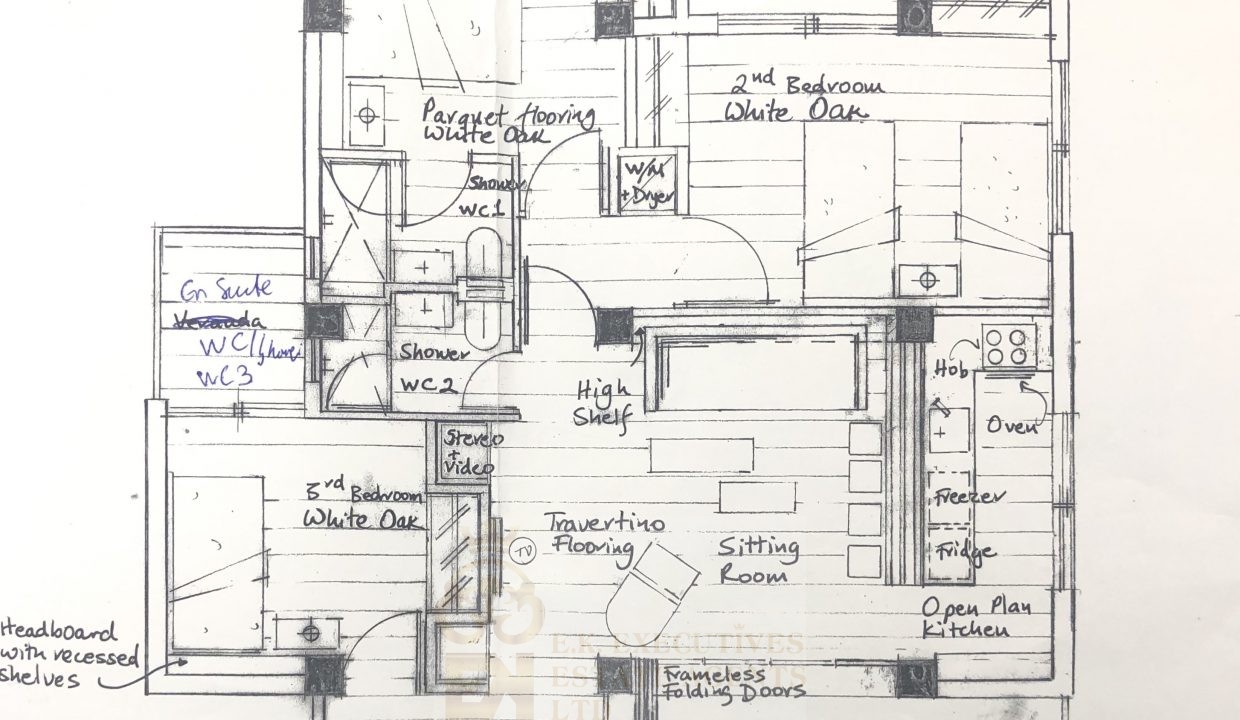 2nd Bedroom
White Oak
Parquet flooring
White Oak
W/M
+ Dryer
Shower
WC1
En Suite
Veranda
WC/Shower
WC3
Shower
WC2
High
Shelf
Hob
Oven
Stereo
+
Video
3rd Bedroom
White Oak
Travertino
Flooring
TV
Sitting
Room
Freezer
Fridge
Open Plan
Kitchen
Headboard
with recessed
shelves
Frameless
Folding Doors
E.K EXECUTIVES
ESTATE AGENTS
LTD